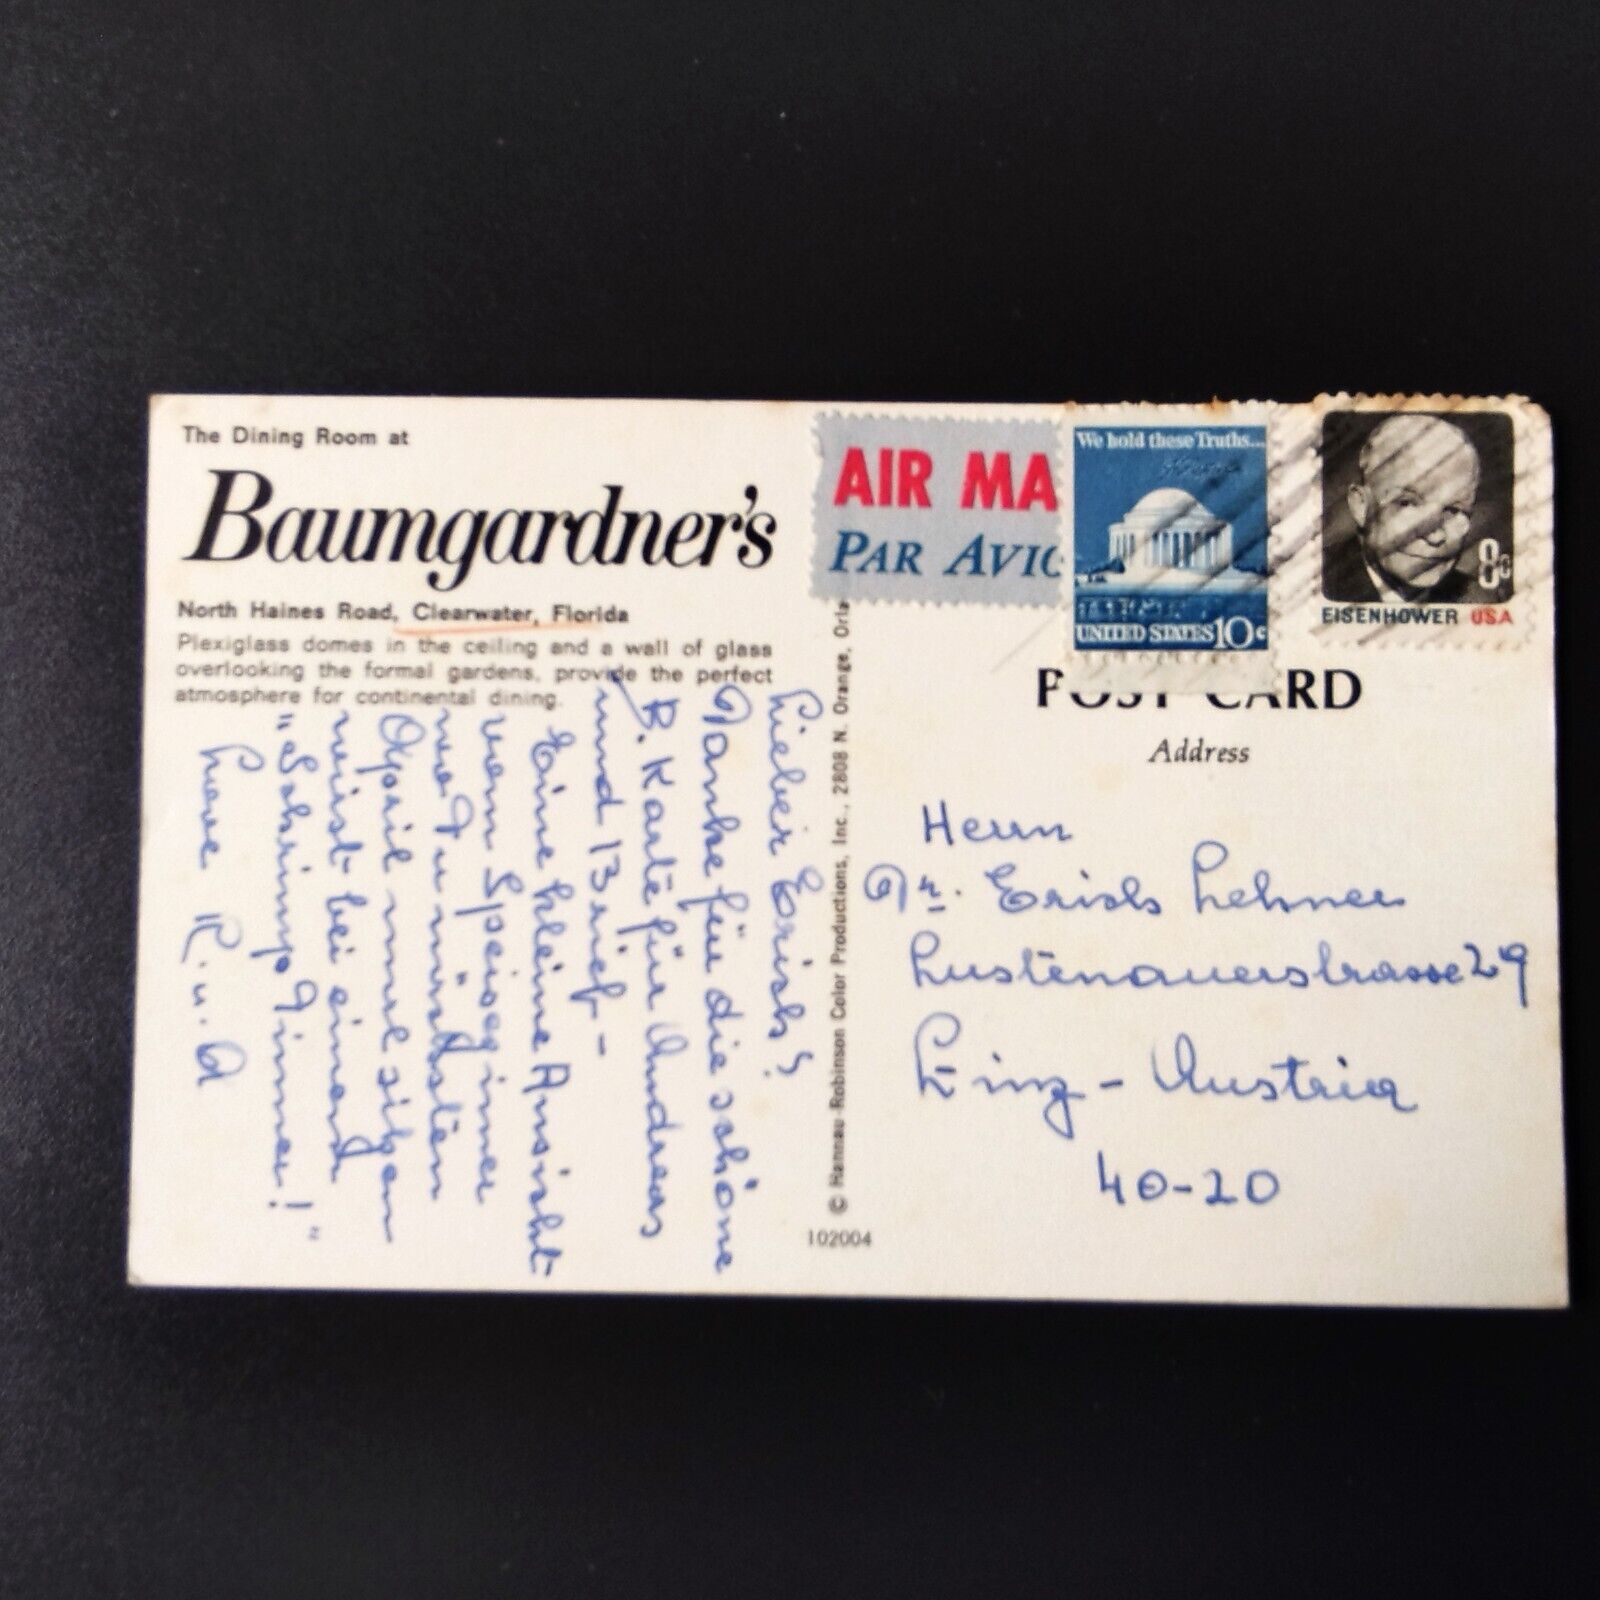 The Dining Room at
Baumgardner's
North Haines Road, Clearwater, Florida
Plexiglass domes in the ceiling and a wall of glass
overlooking the formal gardens, provide the perfect
atmosphere for continental dining.
Lieber Erich!
Danke für die schöne
B. Karte für Andreas
und Brief -
Eine kleine Ansicht
vom Speisezimmer
wo Du nächsten
April wirst sitzen
bei einem
"Schrimp Dinner!"
Love R. u. A
© Hannau-Robinson Color Productions, Inc., 2808 N. Orange, Orla
102004
AIR MA
PAR AVIO
We hold these Truths...
UNITED STATES 10c
8c
EISENHOWER USA
POST CARD
Address
Herrn
Dr. Erich Lehner
Lustenauerstrasse 29
Linz - Austria
40-20